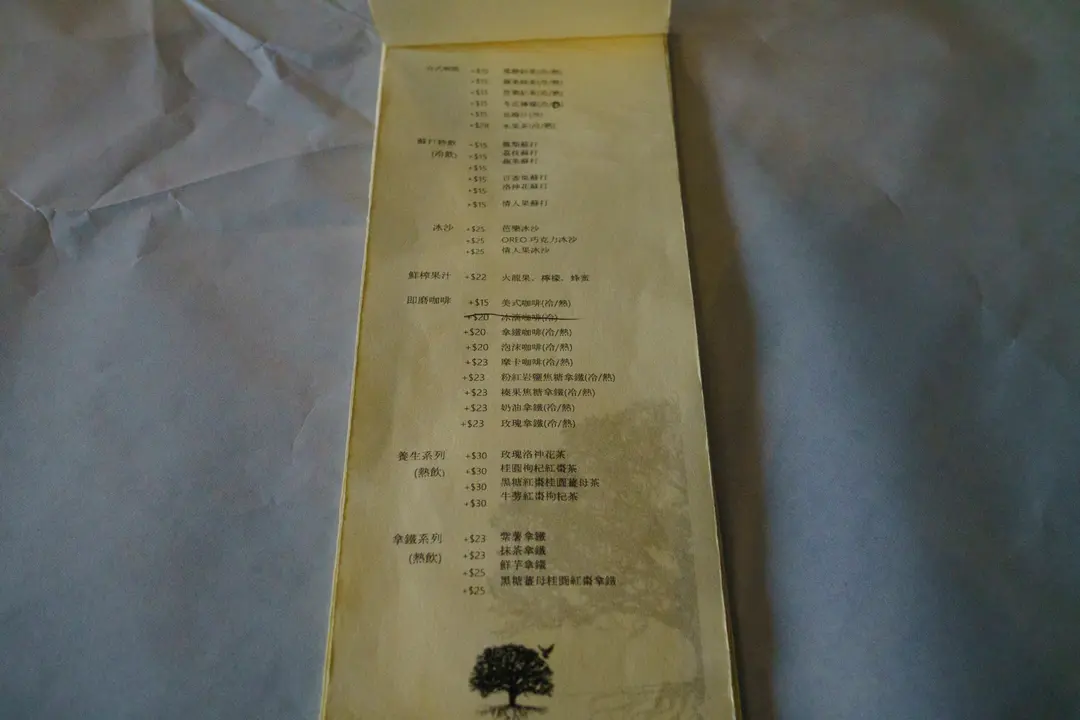 +$15
+$15
+$15
+$15
+$15
(冷飲) +$15 荔枝蘇打
+$15 蘇打
+$15 百香果蘇打
+$15 洛神花蘇打
+$15 情人果蘇打
冰沙 +$25 芭樂冰沙
+$25 OREO 巧克力冰沙
+$25 情人果冰沙
鮮榨果汁 +$22 火龍果、檸檬、蜂蜜
即磨咖啡 +$15 美式咖啡(冷/熱)
+$20 冰滴咖啡(冷)
+$20 拿鐵咖啡(冷/熱)
+$20 泡沫咖啡(冷/熱)
+$23 摩卡咖啡(冷/熱)
+$23 粉紅岩鹽焦糖拿鐵(冷/熱)
+$23 榛果焦糖拿鐵(冷/熱)
+$23 奶油拿鐵(冷/熱)
+$23 玫瑰拿鐵(冷/熱)
養生系列 +$30 玫瑰洛神花茶
(熱飲) +$30 桂圓枸杞紅棗茶
+$30 黑糖紅棗桂圓薑母茶
+$30 牛蒡紅棗枸杞茶
拿鐵系列 +$23 紫薯拿鐵
(熱飲) +$23 抹茶拿鐵
+$25 鮮芋拿鐵
+$25 黑糖薑母桂圓紅棗拿鐵